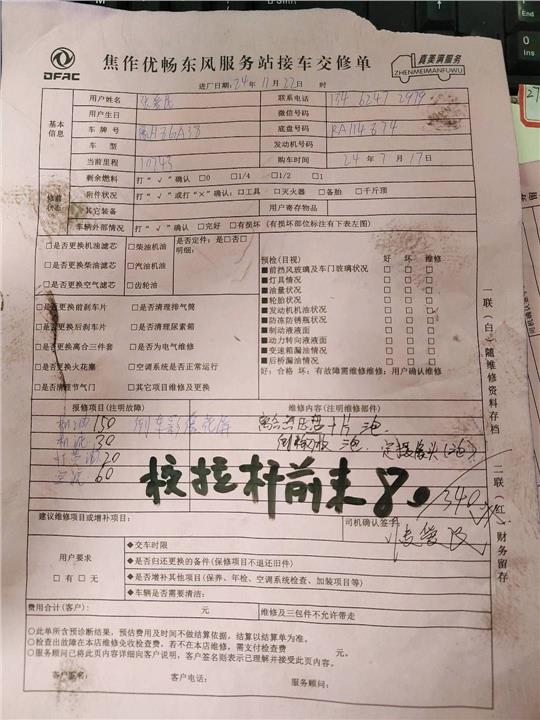 DFAC
焦作优畅东风服务站接车交修单
真美满服务
ZHENMEIMANFUWU
进厂日期:24年11月22日 时
基本信息
用户姓名 联系电话 134 6247 2979
用户生日 微信号码
车牌号 底盘号码
车型 发动机号码
当前里程 10743 购车时间 24年7月17日
修前状态
剩余燃料 打"√"确认 □0 □1/4 □1/2 □1
附件状况 打"√"或打"×"确认:□工具 □灭火器 □备胎 □千斤顶
其它装备 用户寄存物品
车辆外部情况 打"√"确认 □完好 □有损 (有损坏部位标注有下表左图)
□是否更换机油滤芯 □柴油机油 是否定件:是□否□
明细:
□是否更换柴油滤芯 □汽油机油
□是否更换空气滤芯 □齿轮油
□是否更换前刹车片 □是否清理排气筒
□是否更换后刹车片 □是否清理尿素箱
□是否更换离合三件套 □是否为电气维修
□是否更换火花塞 □空调系统是否正常运行
□是否清理节气门 □其它项目维修及更换
预检(目视) 好 坏 维修
■前挡风玻璃及车门玻璃状况 □ □ □
■灯具情况 □ □ □
■油量状况 □ □ □
■轮胎状况 □ □ □
■发动机机油状况 □ □ □
■防冻防锈瓶状况 □ □ □
■制动液液面 □ □ □
■动力转向液液面 □ □ □
■变速箱漏油情况 □ □ □
■后桥漏油情况 □ □ □
好:合格 坏:有故障需维修维修:用户确认维修
报修项目(注明故障) 维修内容(注明维修部件)
机油150 倒车影像花屏
机滤30
20
空滤60
定摄像头
校拉杆前束80
340
建议维修项目或增补项目: 司机确认签字:
用户要求
□有 □无
◆交车时限
◆是否归还更换的备件(保修项目不退还旧件)
◆是否增补其他项目(保养、年检、空调系统检查、加装项目等)
◆车辆是否需要清洁:
费用合计(客户): 元 维修及三包件不允许带走
○此单所含预诊断结果,预估费用及时间不做结算依据,结算以结算单为准。
○检查出故障在本店维修免收检查费,若不在本店维修,需支付检查费 元。
○服务顾问已将此页内容详细向客户说明,客户签名则表示已理解并接受此页内容。
客户签名: 客户电话: 服务顾问:
一联(白)随维修资料存档
二联(红)财务留存